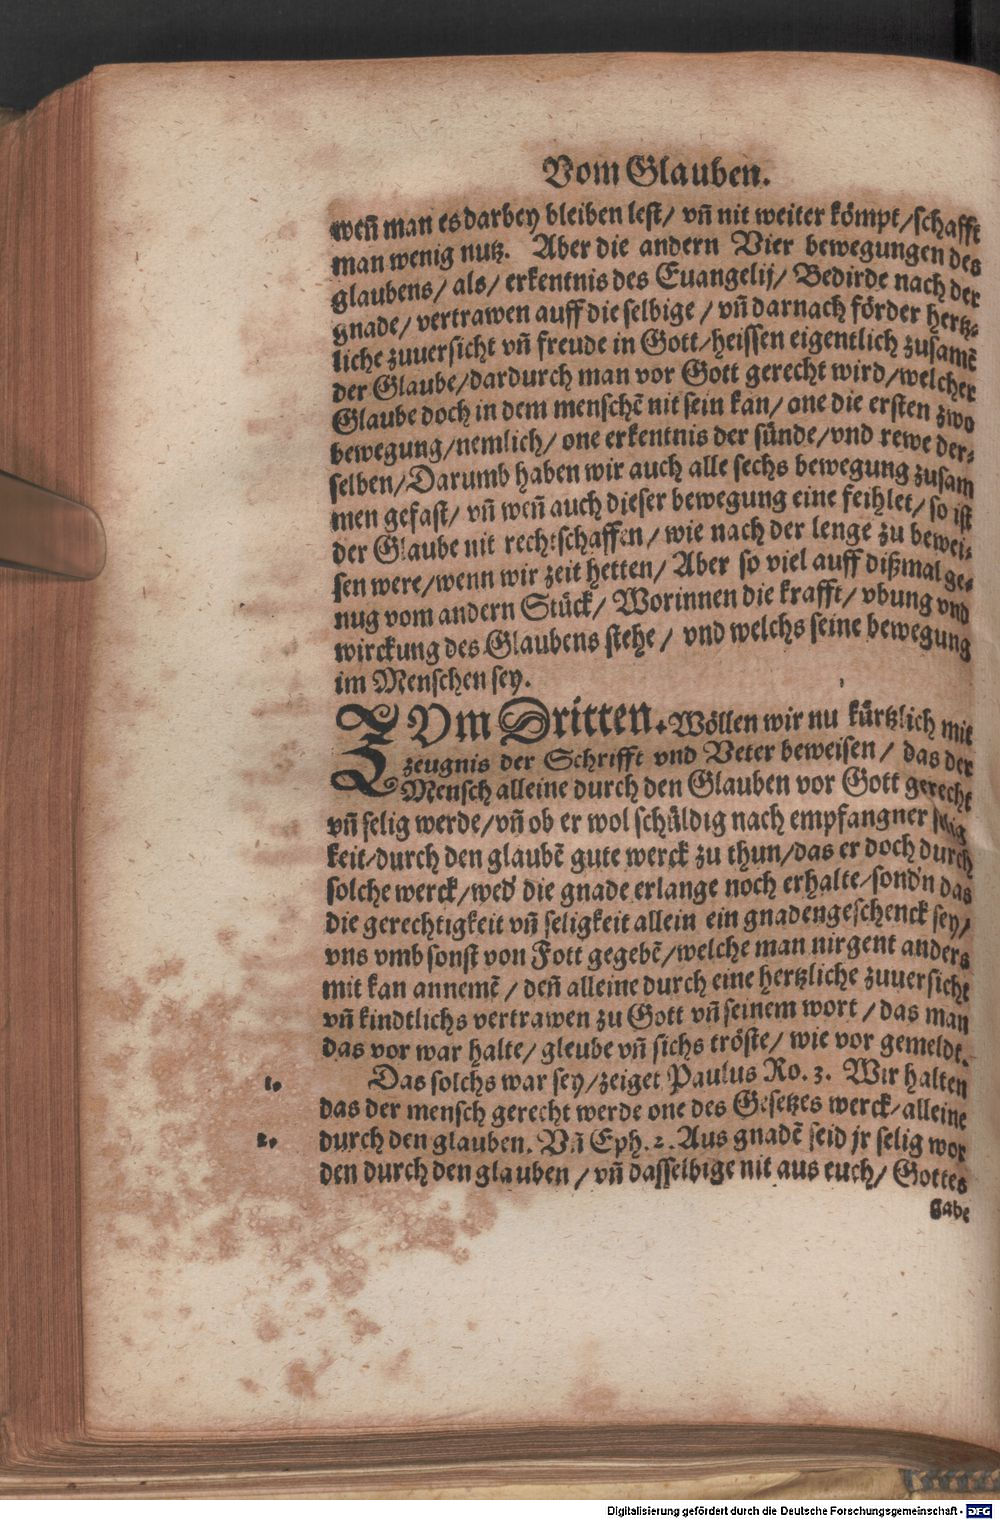 Vom Glauben.
weñ man es darbey bleiben lest/ vñ nit weiter kömpt/schafft
man wenig nutz. Aber die andern Vier bewegungen des
glaubens/ als/ erkentnis des Euangelij/ Bedirde nach der
gnade/ vertrawen auff die selbige / vñ darnach förder hertz-
liche zuuersicht vñ freude in Gott/heissen eigentlich zusamẽ
der Glaube/dardurch man vor Gott gerecht wird/welcher
Glaube doch in dem menschẽ nit sein kan/ one die ersten zwo
bewegung/nemlich/ one erkentnis der sünde/vnd rewe der-
selben/Darumb haben wir auch alle sechs bewegung zusam
men gefast/ vñ weñ auch dieser bewegung eine feihlet/ so ist
der Glaube nit rechtschaffen / wie nach der lenge zu bewei-
sen were/wenn wir zeit hetten/ Aber so viel auff dißmal ge-
nug vom andern Stück/ Worinnen die krafft/ vbung vnd
wirckung des Glaubens stehe / vnd welchs seine bewegung
im Menschen sey.
ZVm Dritten. Wöllen wir nu kürtzlich mit
zeugnis der Schrifft vnd Veter beweisen / das der
Mensch alleine durch den Glauben vor Gott gerecht
vñ selig werde/vñ ob er wol schüldig nach empfangner selig
keit/durch den glaubẽ gute werck zu thun/das er doch durch
solche werck/wed' die gnade erlange noch erhalte/sond'n das
die gerechtigkeit vñ seligkeit allein ein gnadengeschenck sey/
vns vmb sonst von Fott gegebẽ/welche man nirgent anders
mit kan annemẽ / deñ alleine durch eine hertzliche zuuersicht
vñ kindtlichs vertrawen zu Gott vñ seinem wort / das man
das vor war halte/ gleube vñ sichs tröste/ wie vor gemeldt.
1. Das solchs war sey/zeiget Paulus Ro. 3. Wir halten
das der mensch gerecht werde one des Gesetzes werck/alleine
2. durch den glauben. Vñ Eph. 2. Aus gnadẽ seid jr selig wor
den durch den glauben / vñ dasselbige nit aus euch/ Gottes
gabe
Digitalisierung gefördert durch die Deutsche Forschungsgemeinschaft - DFG